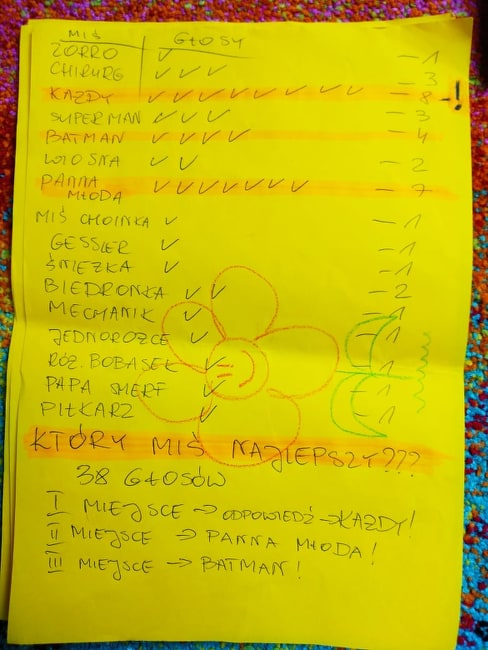 MIŚ GŁOSY
ZORRO ✓ – 1
CHIRURG ✓ ✓ ✓ – 3
KAŻDY ✓ ✓ ✓ ✓ ✓ ✓ ✓ ✓ – 8 – !
SUPERMAN ✓ ✓ ✓ – 3
BATMAN ✓ ✓ ✓ ✓ – 4
WIOSNA ✓ ✓ – 2
PANNA ✓ ✓ ✓ ✓ ✓ ✓ ✓ – 7
MŁODA
MIŚ CHOINKA ✓ – 1
GESSLER ✓ – 1
ŚNIEŻKA ✓ – 1
BIEDRONKA ✓ ✓ – 2
MECHANIK ✓ – 1
JEDNOROŻEC ✓ – 1
RÓŻ. BOBASEK ✓ – 1
PAPA SMERF ✓ – 1
PIŁKARZ ✓ – 1
KTÓRY MIŚ NAJLEPSZY???
38 GŁOSÓW
I MIEJSCE → ODPOWIEDŹ → KAŻDY!
II MIEJSCE → PANNA MŁODA!
III MIEJSCE → BATMAN!